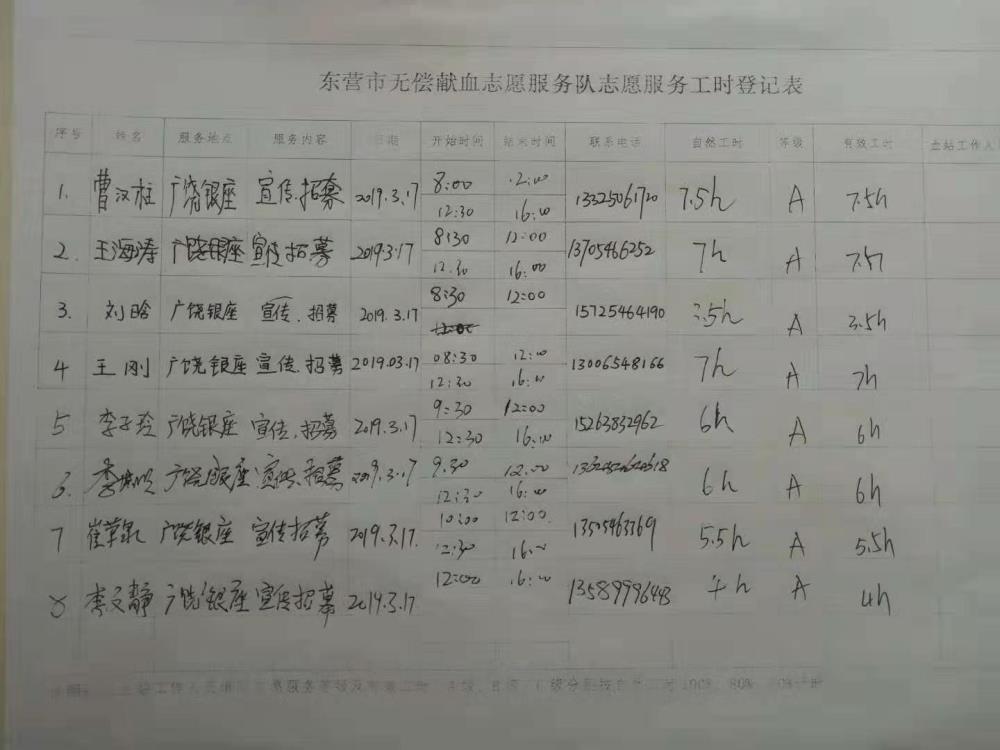 东营市无偿献血志愿服务队志愿服务工时登记表
序号 姓名 服务地点 服务内容 日期 开始时间 结束时间 联系电话 自然工时 等级 有效工时 血站工作人
1. 曹汉柱 广饶银座 宣传.招募 2019.3.17 8:00 12:00 13325061720 7.5h A 7.5h
12:30 16:00
2. 王海涛 广饶银座 宣传招募 2019.3.17 8:30 12:00 13705466252 7h A
12.30 16:00
3. 刘晗 广饶银座 宣传.招募 2019.3.17 8:30 12:00 15725464190 3.5h A 3.5h
4 王刚 广饶银座 宣传.招募 2019.03.17 08:30 12:00 13006548166 7h A 7h
12:30 16:00
5 李子玲 广饶银座 宣传.招募 2019.3.17 9:30 12:00 15263832962 6h A 6h
12:30 16:00
6. 广饶银座 宣传.招募 2019.3.17 9.30 12:00 6h A 6h
12:30 16:00
7 崔草泉 广饶银座 宣传招募 2019.3.17. 10:00 12:00. 13505463369 5.5h A 5.5h
12:30 16:00
8 李文静 广饶银座 宣传招募 2019.3.17 12:00 16:00 13589996448 4h A 4h